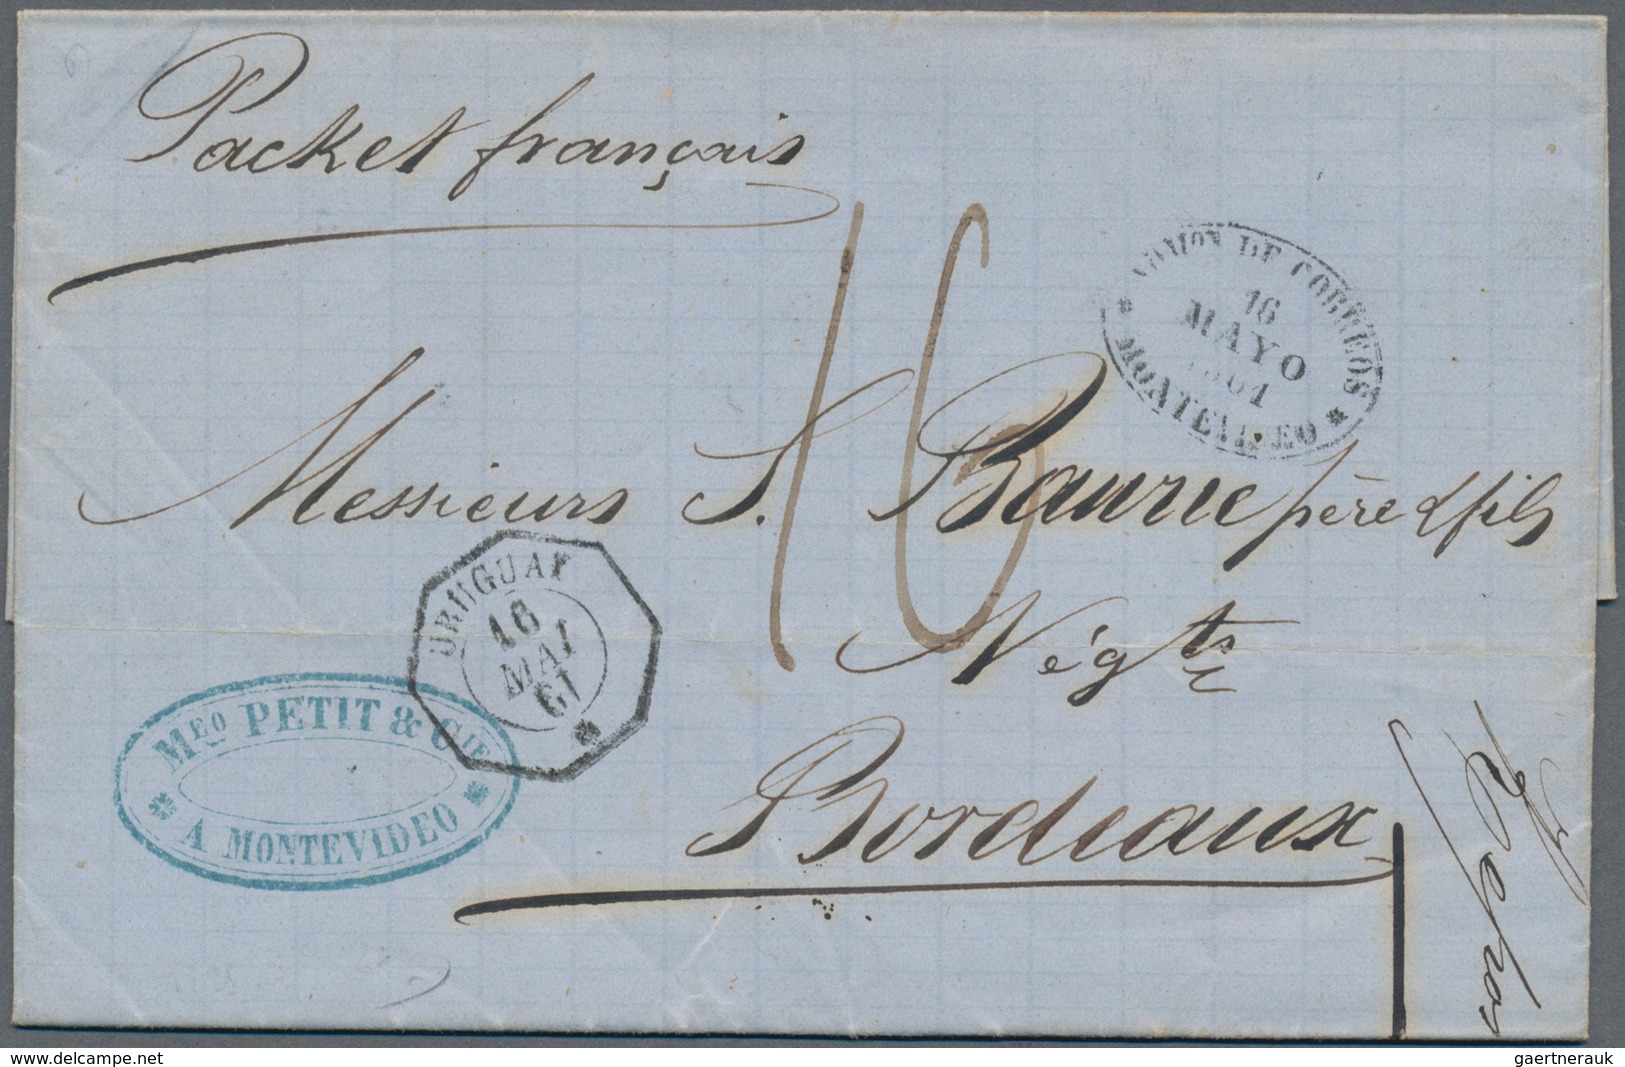 Packet français
16
DE CORREOS
16
MAYO
1861
Messieurs S. Baurie père & fils
URUGUAY
16
MAI
61
Négts
MEO PETIT & CIE
A MONTEVIDEO
Bordeaux
delcampe.net
gaertnerauk